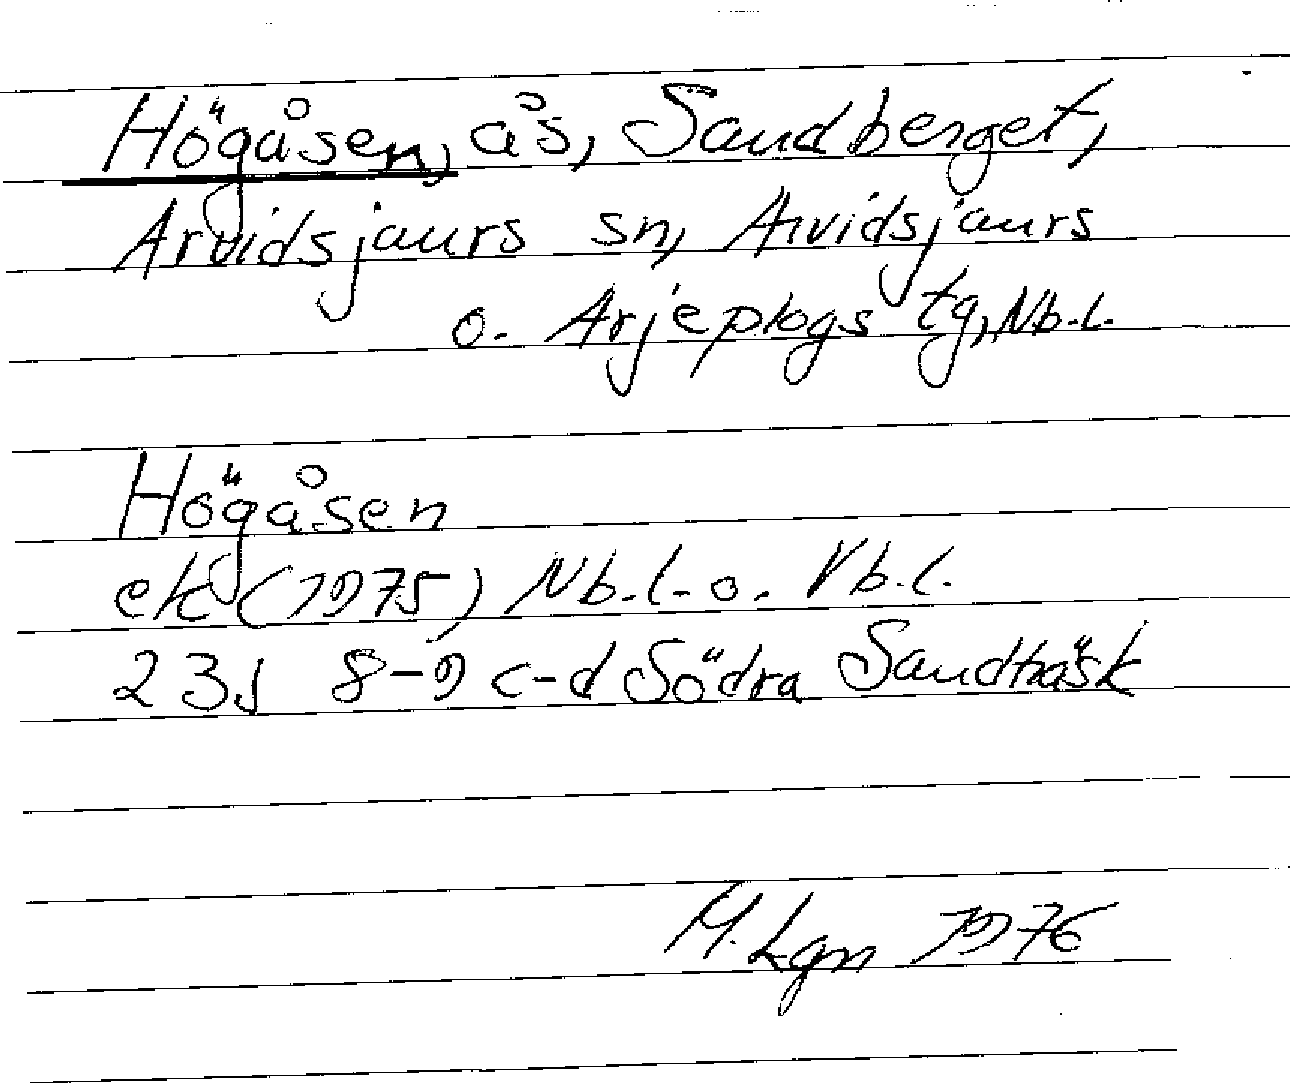 Högåsen, ås, Sandberget,
Arvidsjaurs sn, Arvidsjaurs
o. Arjeplogs tg, Nb.l.
Högåsen
ek (1975) Nb.l. o. Vb.l.
23J 8-9 c-d Södra Sandträsk
M. Lgn 1976